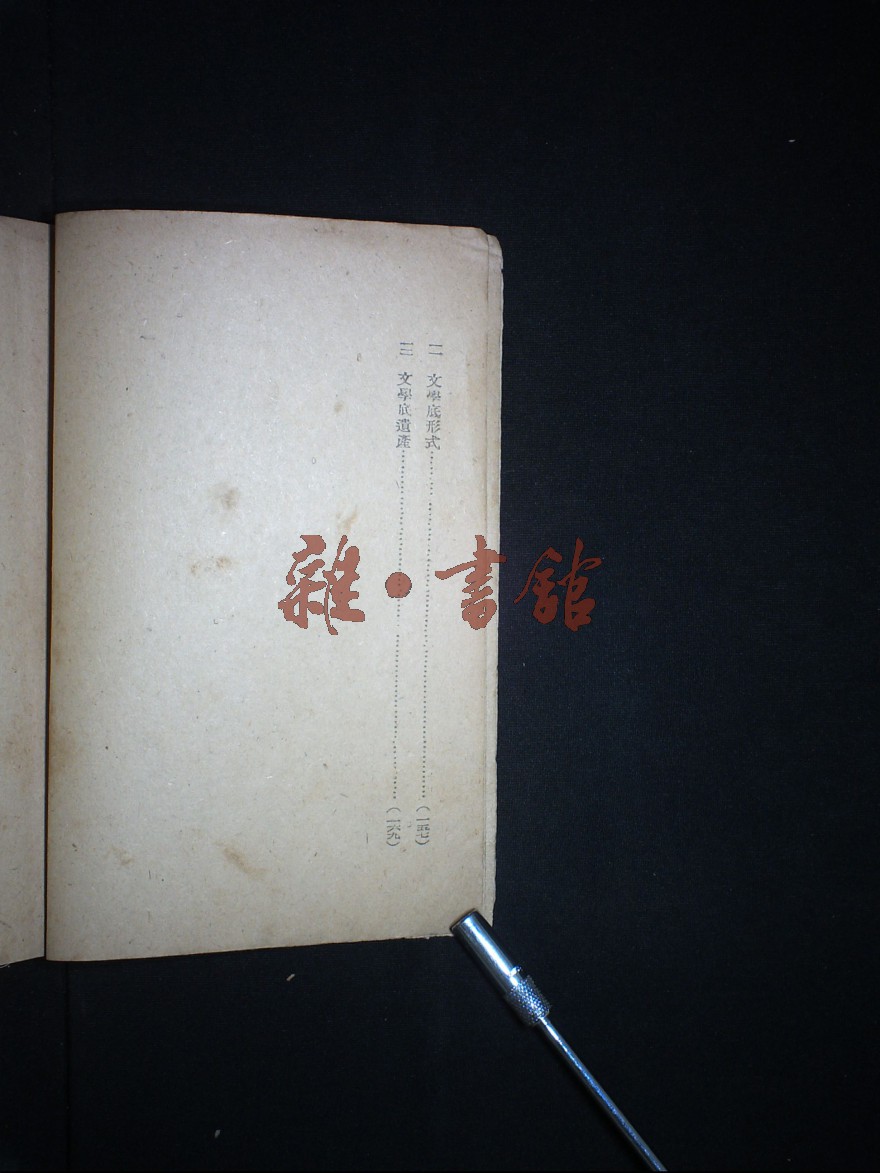 二　文學底形式……………………(一五七)
三　文學底遺產……………………(一六九)
雜·書館